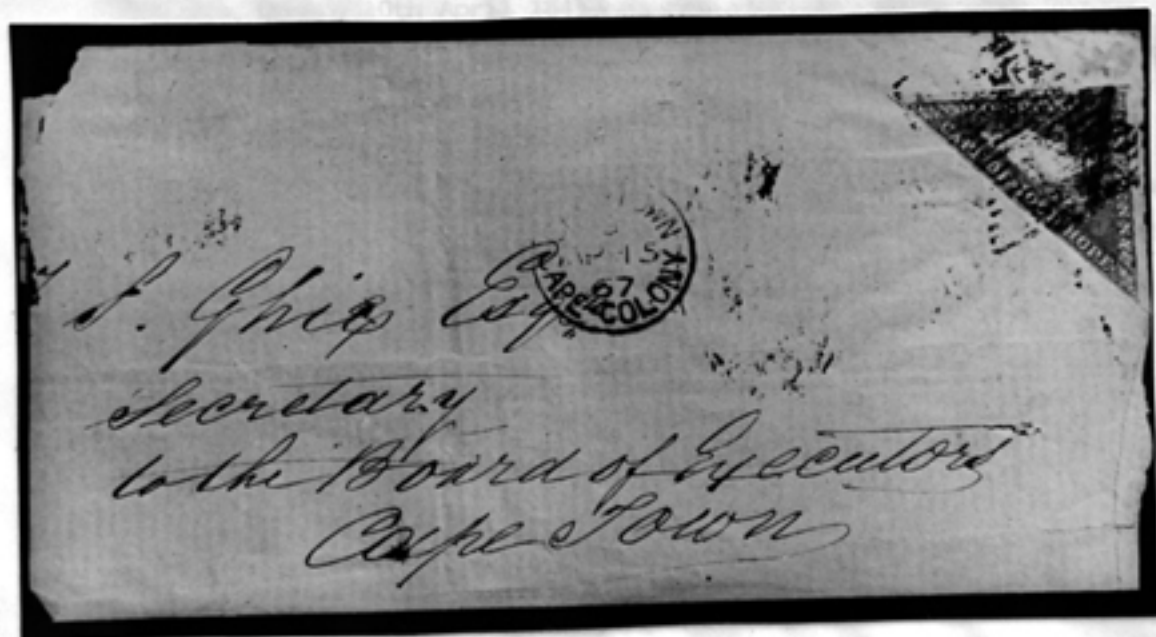 TOWN
15
67
CAPE COLONY
S. Ghiq Esq
Secretary
to the Board of Executors
Cape Town